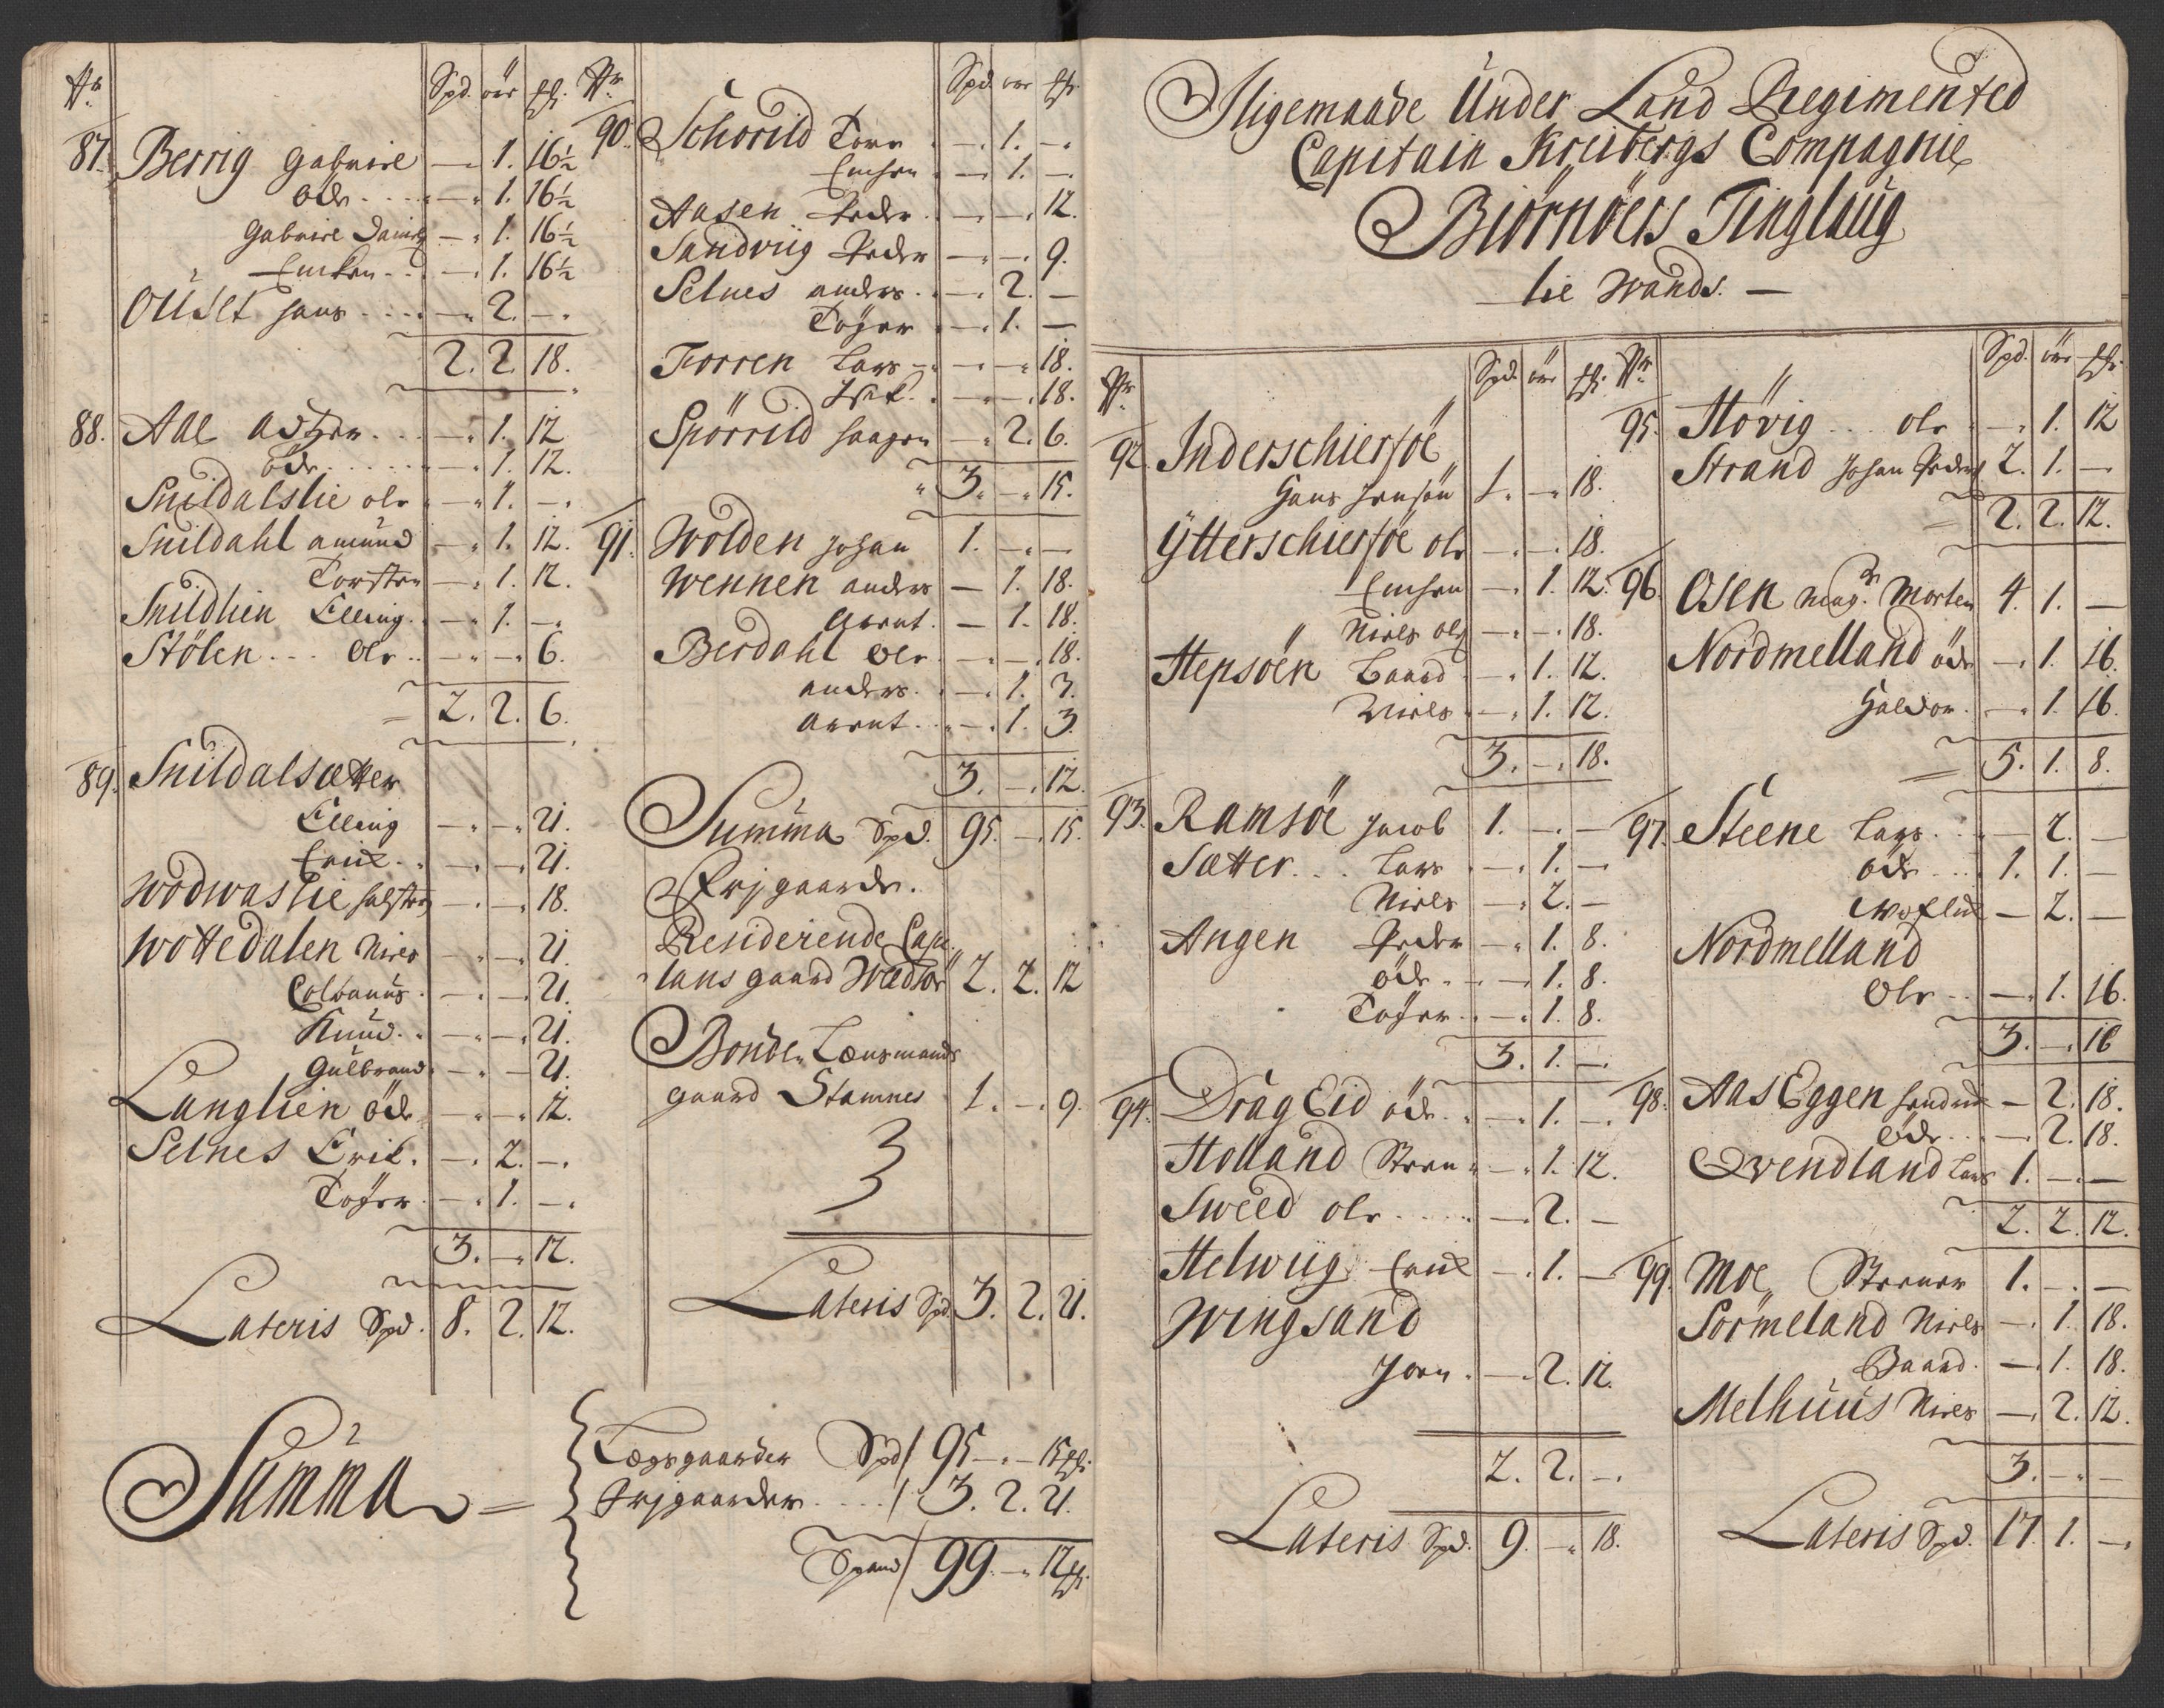 Nr. Spd. ör ß.
87. Berrig Gabriel — 1. 16½
öde — 1. 16½
Gabriel Daniels — 1. 16½
Enchen — 1. 16½
Oüset hans — 2. —
2. 2. 18.
88. Aae — 1. 12
öde — 1. 12.
Snildalslie ole — 1. —
Snildahl amund — 1. 12.
Torsten — 1. 12.
Snildlien Elling — 1. —
Stölen ole — — 6.
2. 2. 6.
89. Snildalsætter
Elling — — 21.
Erich — — 21.
Wodwaslie — — 18.
Wottedalen Niels — — 21.
Colbanus — — 21.
Knud — — 21.
Gulbrand — — 21.
Langlien öde — — 12.
Selnes Erik. — 2. —
Töger — 1. —
3. — 12.
Lateris Spd. 8. 2. 12.
Nr. Spd. ör ß.
90. Schorild Tore — 1. —
Enchen — 1. —
Aasen Peder — — 12.
Sandviig Peder — — 9.
Selnes anders — 2. —
Töger — 1. —
Forren Lars — — 18.
— — 18.
Spörrild haagen — 2. 6.
3. — 15.
91. Wolden Johan 1. — —
Wennen anders — 1. 18.
Arent — 1. 18.
Berdahl ole — — 18.
anders — 1. 3.
Arent — 1. 3.
3. — 12.
Summa Spd. 95. — 15.
Frjgaarde.
Residerende Cape
lans gaard 2. 2. 12
Bonde Lænsmands
gaard Stamnes 1. — 9.
Lateris Spd. 3. 2. 21.
Summa =
Lægsgaarder Spd 95 — 15 ß.
Frjgaarder 3. 2. 21.
Spand 99. — 12 ß.
Sligemaade Under Land Regimented
Capitain Kreibergs Compagnie
Biörnöers Tinglaug
Nr. Spd. ör ß.
92. Inderschiersöe
Hans Jensön 1. — 18.
Ytterschiersöe ole — — 18.
Enchen — 1. 12.
Niels ols — — 18.
Hepsöen Baard — 1. 12.
Niels — 1. 12.
3. — 18.
93. Ramsöe Jacob 1. — —
Sætter Lars — 1. —
Niels — 2. —
Angen Peder — 1. 8.
öde — 1. 8.
Töger — 1. 8.
3. 1. —
94. Drag Eid öde — 1. —
Holland Steen — 1. 12.
Sweed ole — 2. —
Helwiig Erich — 1. —
Wingsand
Joen — 2. 12.
2. 2. —
Lateris Spd. 9. — 18.
Nr. Spd. ör ß.
95. Hövig ole — 1. 12
Strand Johan Peders 2. 1. —
2. 2. 12.
96. Osen Mag. Morten 4. 1. —
Nordmelland öde — 1. 16.
Haldor — 1. 16.
5. 1. 8.
97. Steene Lars — 2. —
öde 1. 1. —
— 2. —
Nordmelland
Ole — 1. 16.
3. — 16
98. Aas Eggen — 2. 18.
öde — 2. 18.
Qvendland Lars 1. — —
2. 2. 12.
99. Moe Steener 1. — —
Sörmeland Niels — 1. 18.
Baard — 1. 18.
Melhuus Niels — 2. 12.
3. — —
Lateris Spd. 17. 1. —